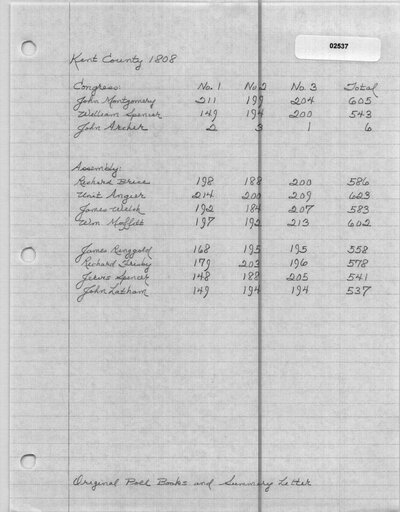 02537
Kent County 1808
Congress: No. 1 No 2 No. 3 Total
John Montgomery 211 199 204 605
William Spencer 149 194 200 543
John Archer 2 3 1 6
Assembly:
Richard Brice 198 188 200 586
Unit Angier 214 200 209 623
James Welsh 192 184 207 583
Wm Moffitt 197 192 213 602
James Ringgold 168 195 195 558
Richard Frisby 179 203 196 578
Jervis Spencer 148 188 205 541
John Latham 149 194 194 537
Original Poll Books and Summary Letter